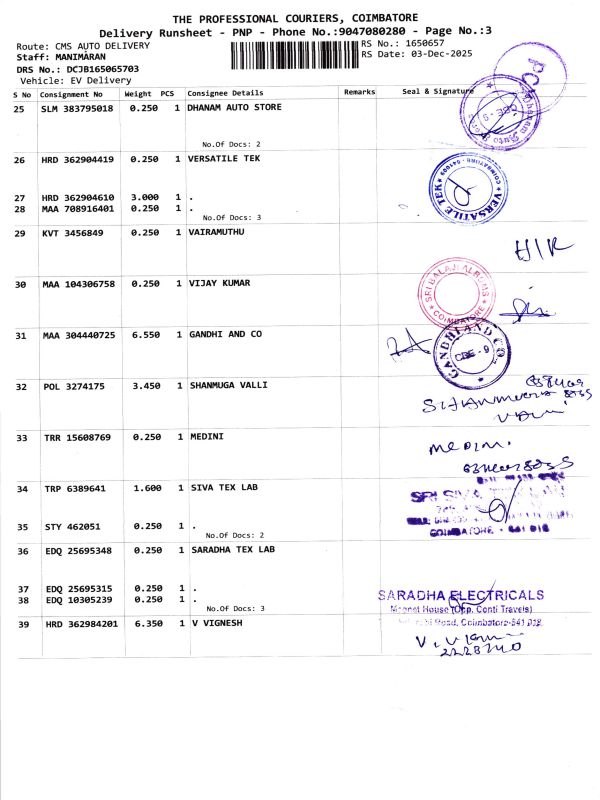 THE PROFESSIONAL COURIERS, COIMBATORE
Delivery Runsheet - PNP - Phone No.:9047080280 - Page No.:3
Route: CMS AUTO DELIVERY
RS No.: 1650657
Staff: MANIMARAN
RS Date: 03-Dec-2025
DRS No.: DCJB165065703
Vehicle: EV Delivery
S No Consignment No Weight PCS Consignee Details Remarks Seal & Signature
25 SLM 383795018 0.250 1 DHANAM AUTO STORE
No.Of Docs: 2
26 HRD 362904419 0.250 1 VERSATILE TEK
VERSATILE TEK
COIMBATORE
27 HRD 362904610 3.000 1 .
28 MAA 708916401 0.250 1 .
No.Of Docs: 3
29 KVT 3456849 0.250 1 VAIRAMUTHU
30 MAA 104306758 0.250 1 VIJAY KUMAR
SRI BALAJI ALRUMS
COIMBATORE
31 MAA 304440725 6.550 1 GANDHI AND CO
GANDHI AND CO
CBE - 9
32 POL 3274175 3.450 1 SHANMUGA VALLI
33 TRR 15608769 0.250 1 MEDINI
MEDINI
34 TRP 6389641 1.600 1 SIVA TEX LAB
SRI SIVA
35 STY 462051 0.250 1 .
No.Of Docs: 2
COIMBATORE - 641 018
36 EDQ 25695348 0.250 1 SARADHA TEX LAB
37 EDQ 25695315 0.250 1 .
38 EDQ 10305239 0.250 1 .
No.Of Docs: 3
SARADHA ELECTRICALS
House (Opp. Conti Travels)
Road, Coimbatore-641 018.
39 HRD 362984201 6.350 1 V VIGNESH